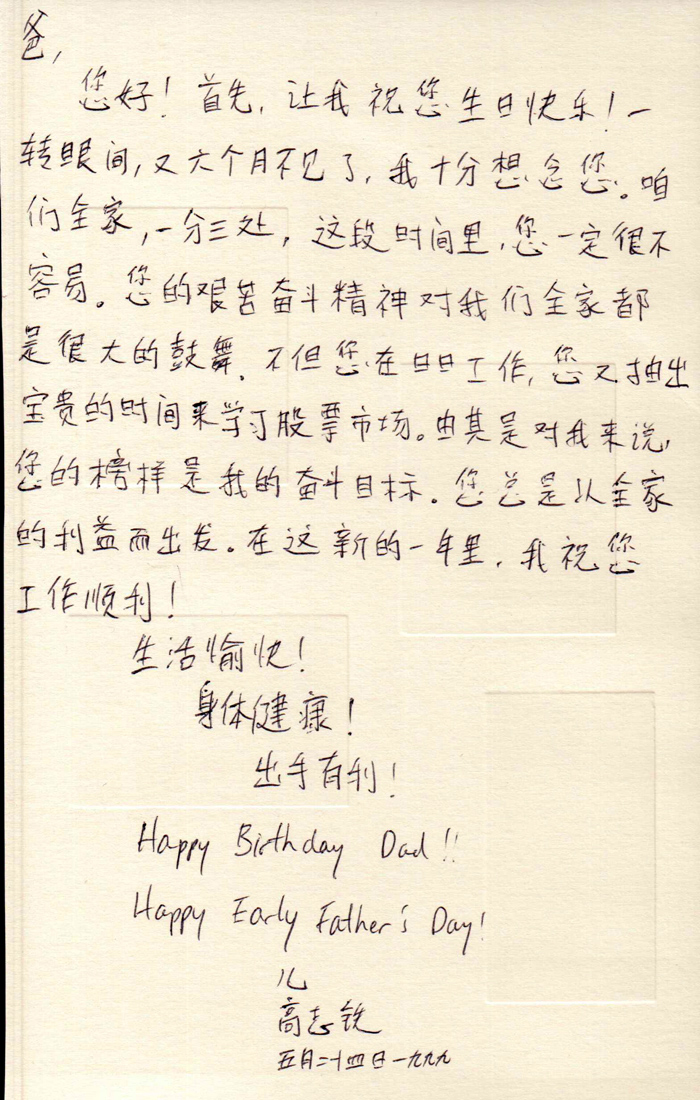 爸,
您好! 首先, 让我祝您生日快乐! 一
转眼间, 又六个月不见了, 我十分想念您。咱
们全家, 一分三处, 这段时间里, 您一定很不
容易。您的艰苦奋斗精神对我们全家都
是很大的鼓舞。不但您在日日工作, 您又抽出
宝贵的时间来学习股票市场。由其是对我来说,
您的榜样是我的奋斗目标。您总是从全家
的利益而出发。在这新的一年里, 我祝您
工作顺利!
生活愉快!
身体健康!
出手有利!
Happy Birthday Dad!!
Happy Early Father's Day!
儿
高志铣
五月二十四日一九九九